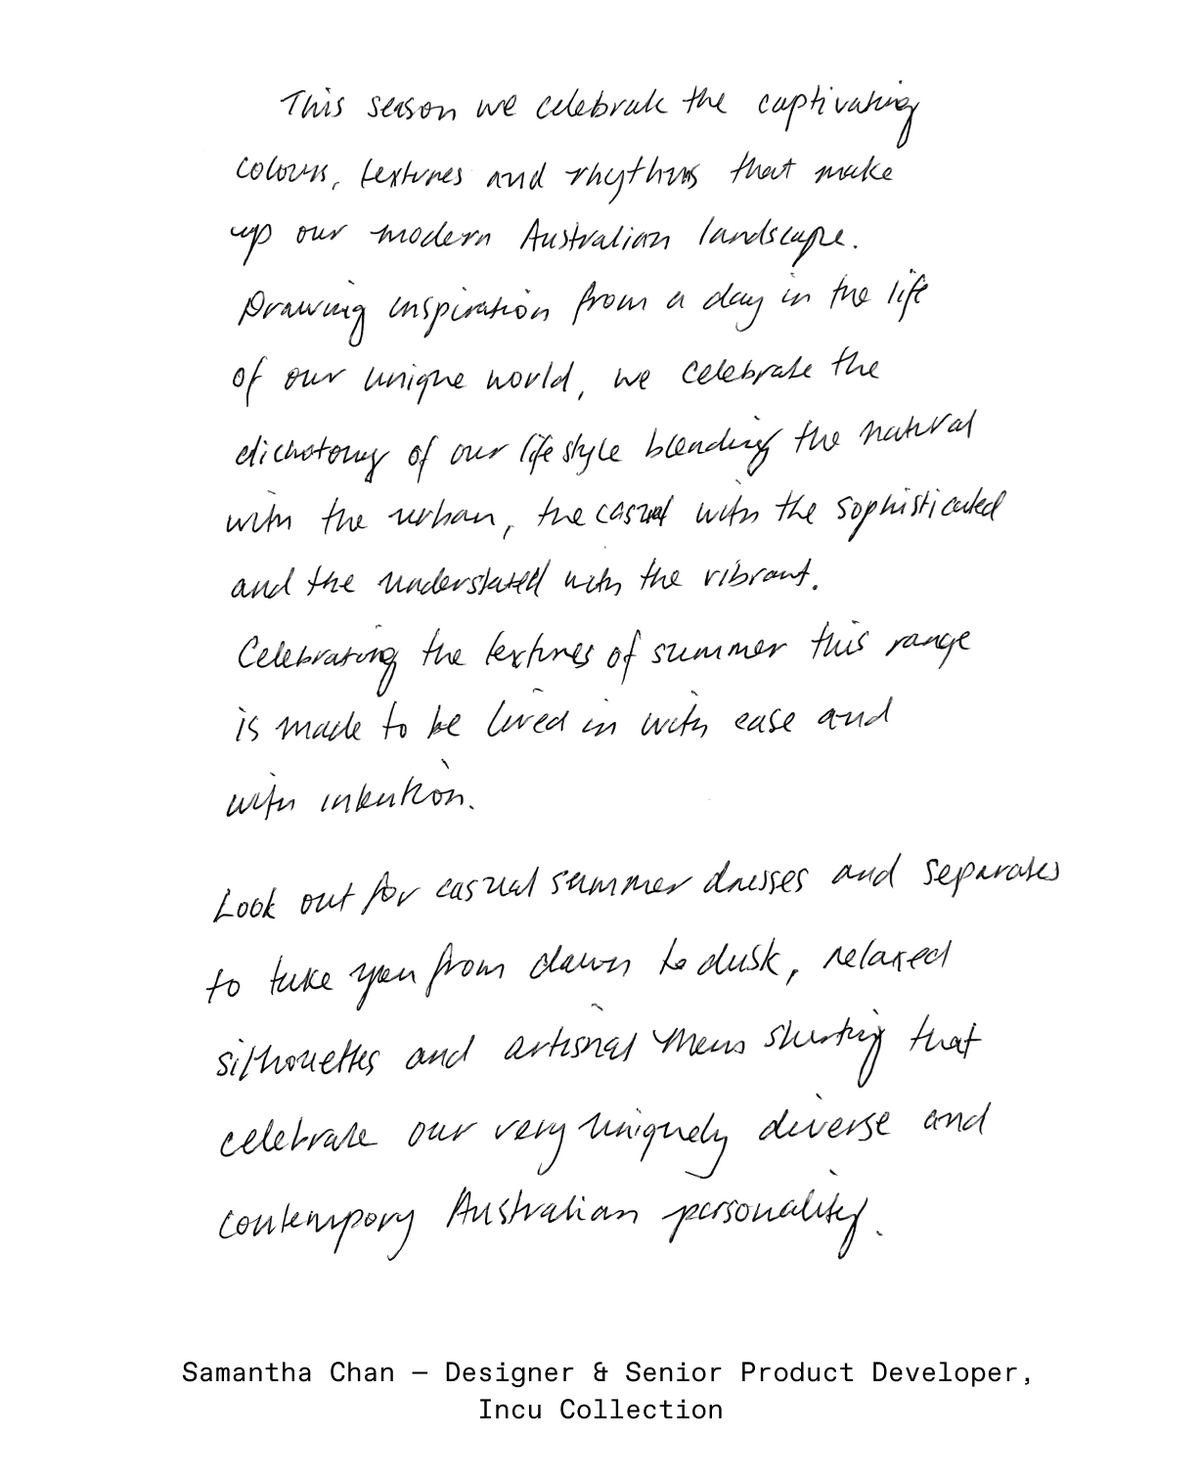 This season we celebrate the captivating
colours, textures and rhythms that make
up our modern Australian landscape.
Drawing inspiration from a day in the life
of our unique world, we celebrate the
dichotomy of our lifestyle blending the natural
with the urban, the casual with the sophisticated
and the understated with the vibrant.
Celebrating the textures of summer this range
is made to be lived in with ease and
with intention.
Look out for casual summer dresses and separates
to take you from dawn to dusk, relaxed
silhouettes and artisnal mens shirting that
celebrate our very uniquely diverse and
contempory Australian personality.
Samantha Chan — Designer & Senior Product Developer,
Incu Collection